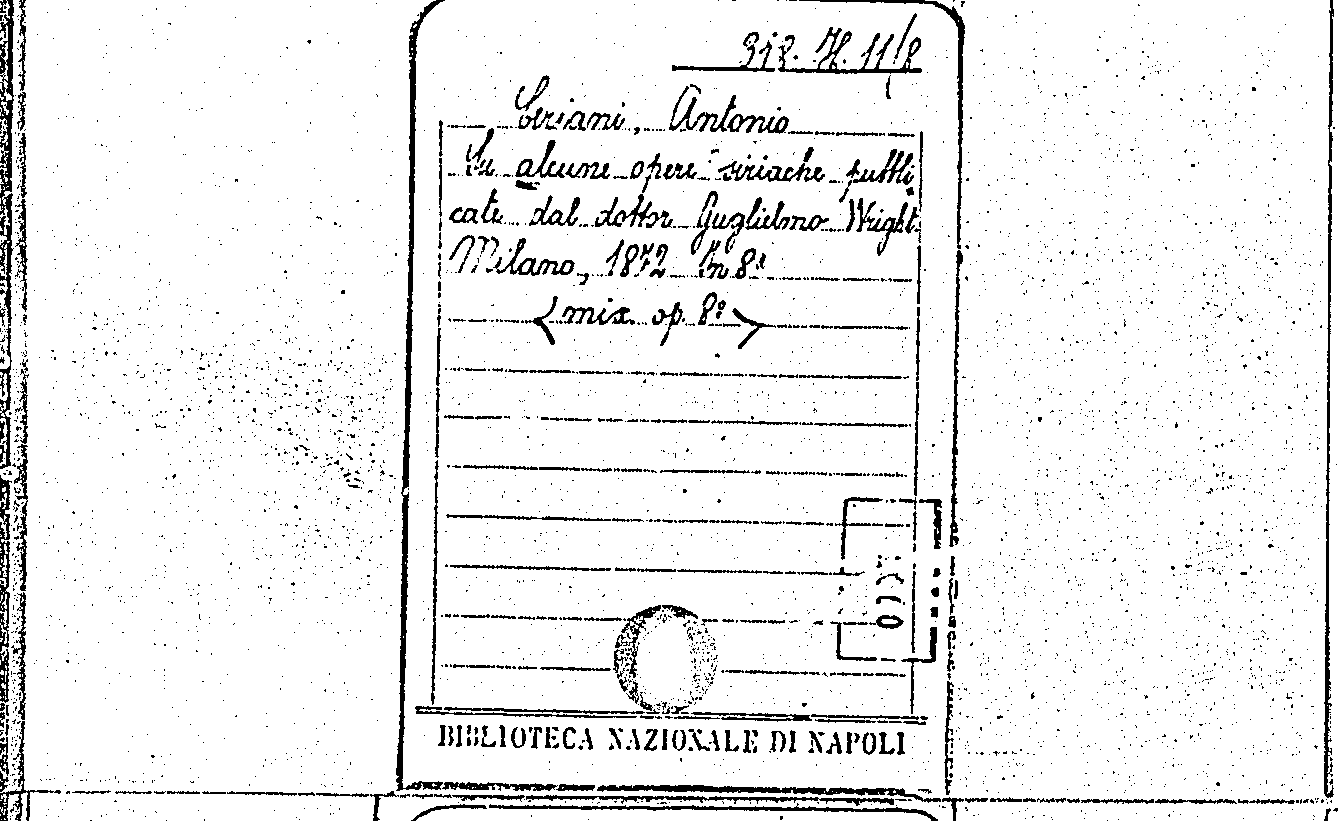 312. H. 11/2
Ceriani, Antonio
Su alcune opere siriache pubbli
cate dal dottor Guglielmo Wright.
Milano, 1872 In 8º
(mix. op. 8º)
BIBLIOTECA NAZIONALE DI NAPOLI